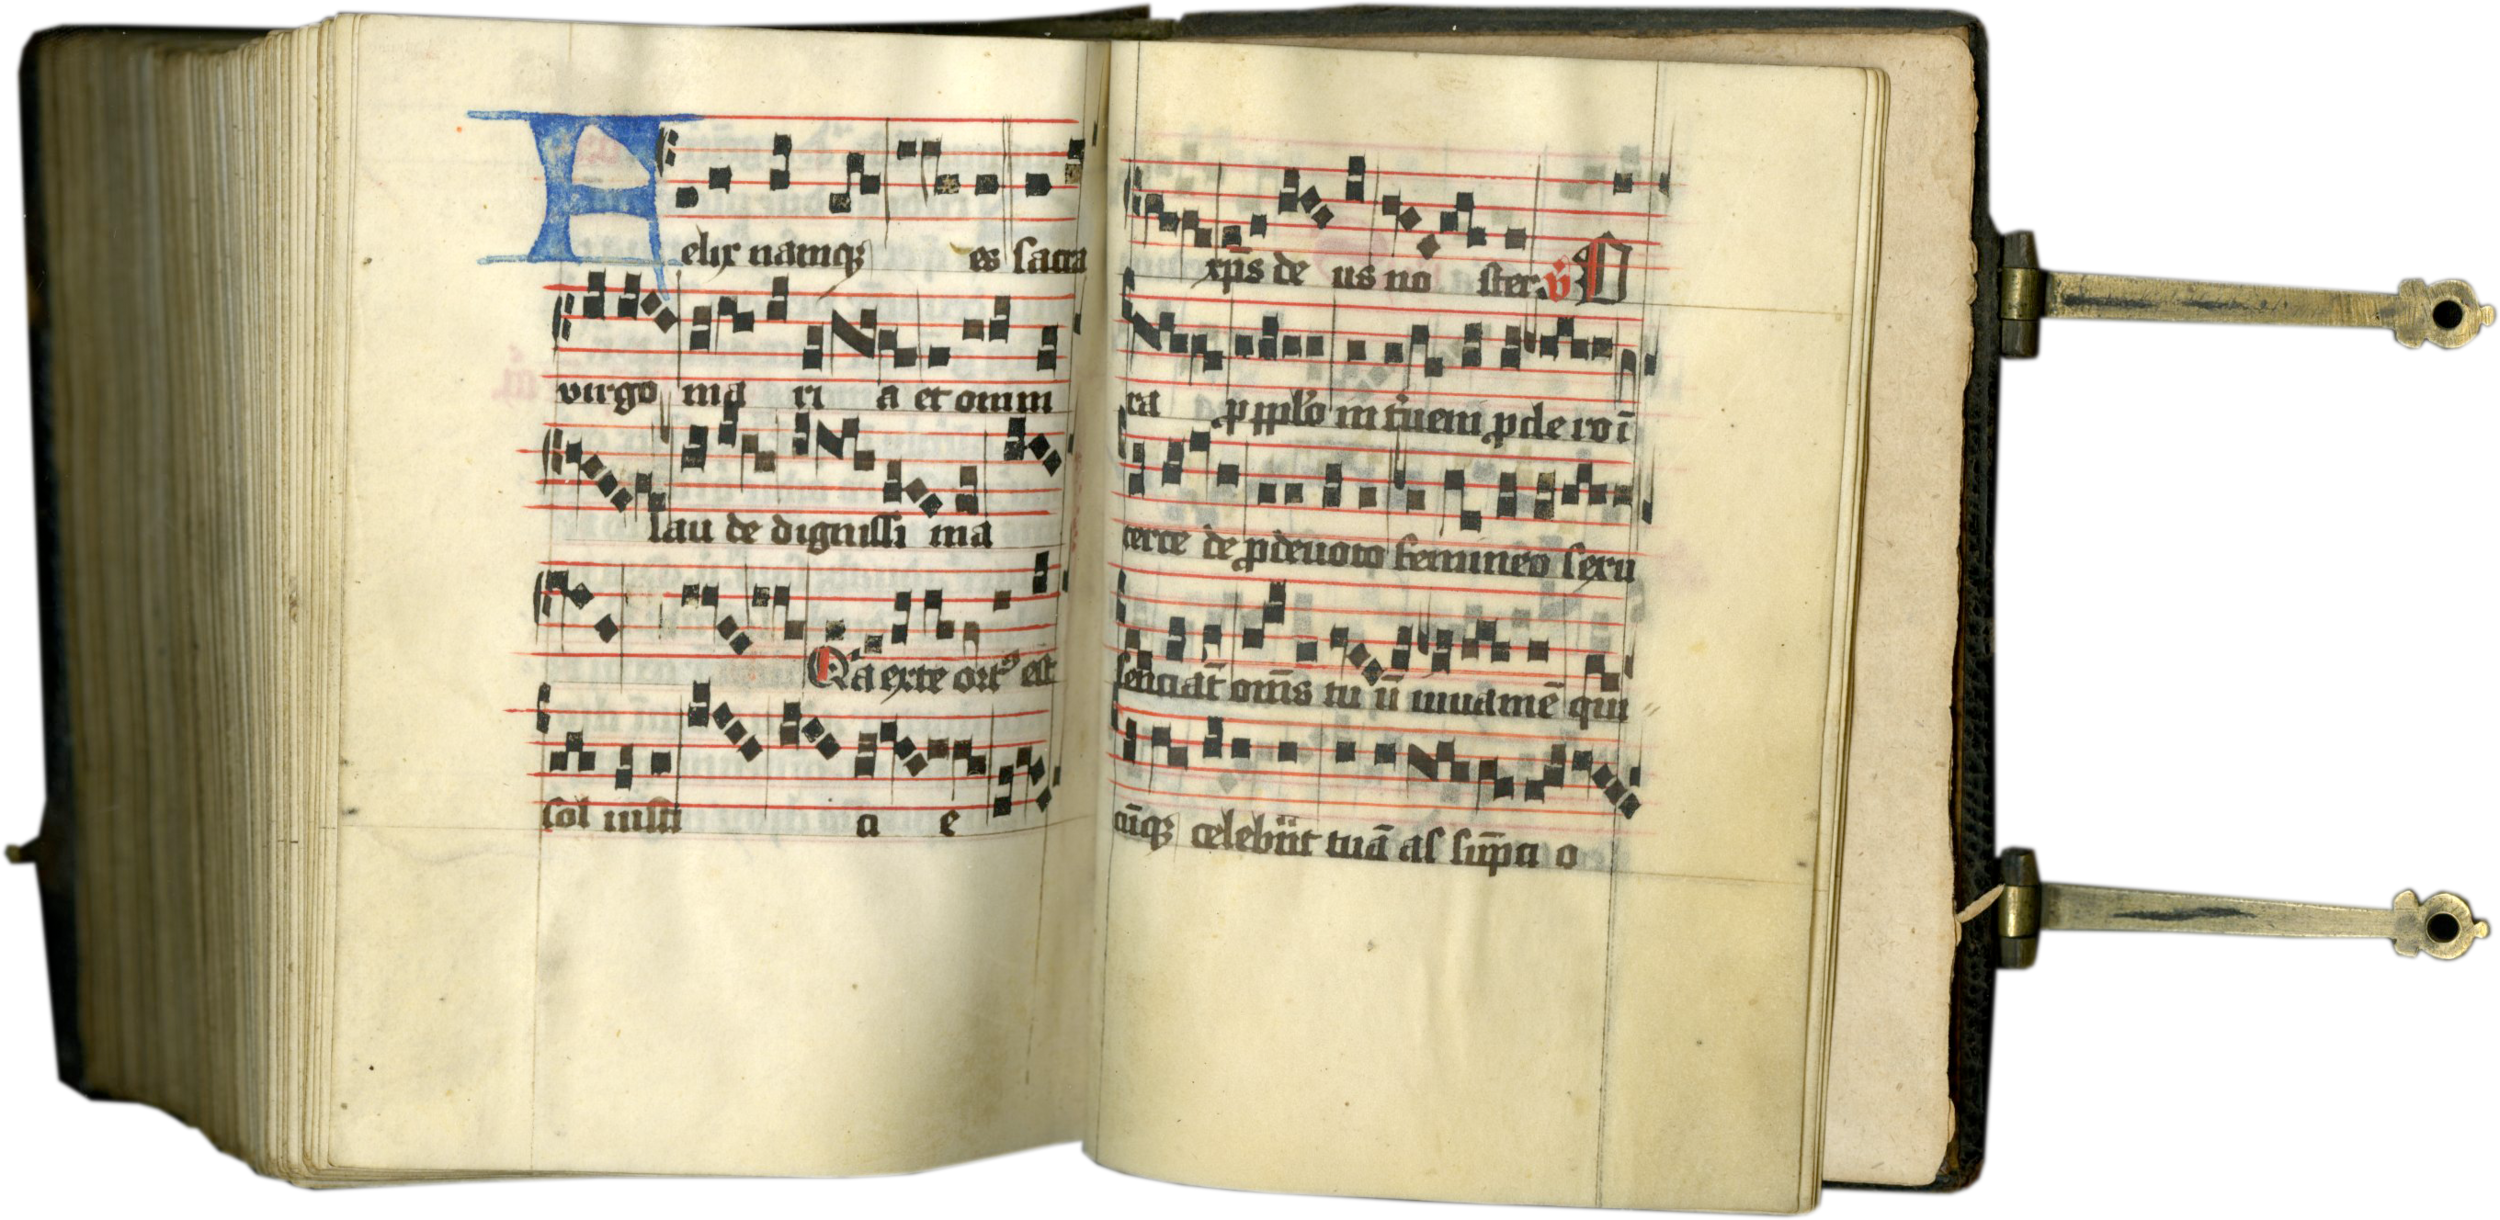 Felix namq; es sacra
virgo ma ri a et omni
lau de dignissi ma
Q'a exte ort9 est
sol iusti ci e
xp̄s de us no ster. v̄ O
ra p pplo in t'uem p cle ro ī
terce de p deuoto femineo sexu
senciāt om̄s tu ū iuuamē qui
cūq; celebr̄nt tuā as sūpci o